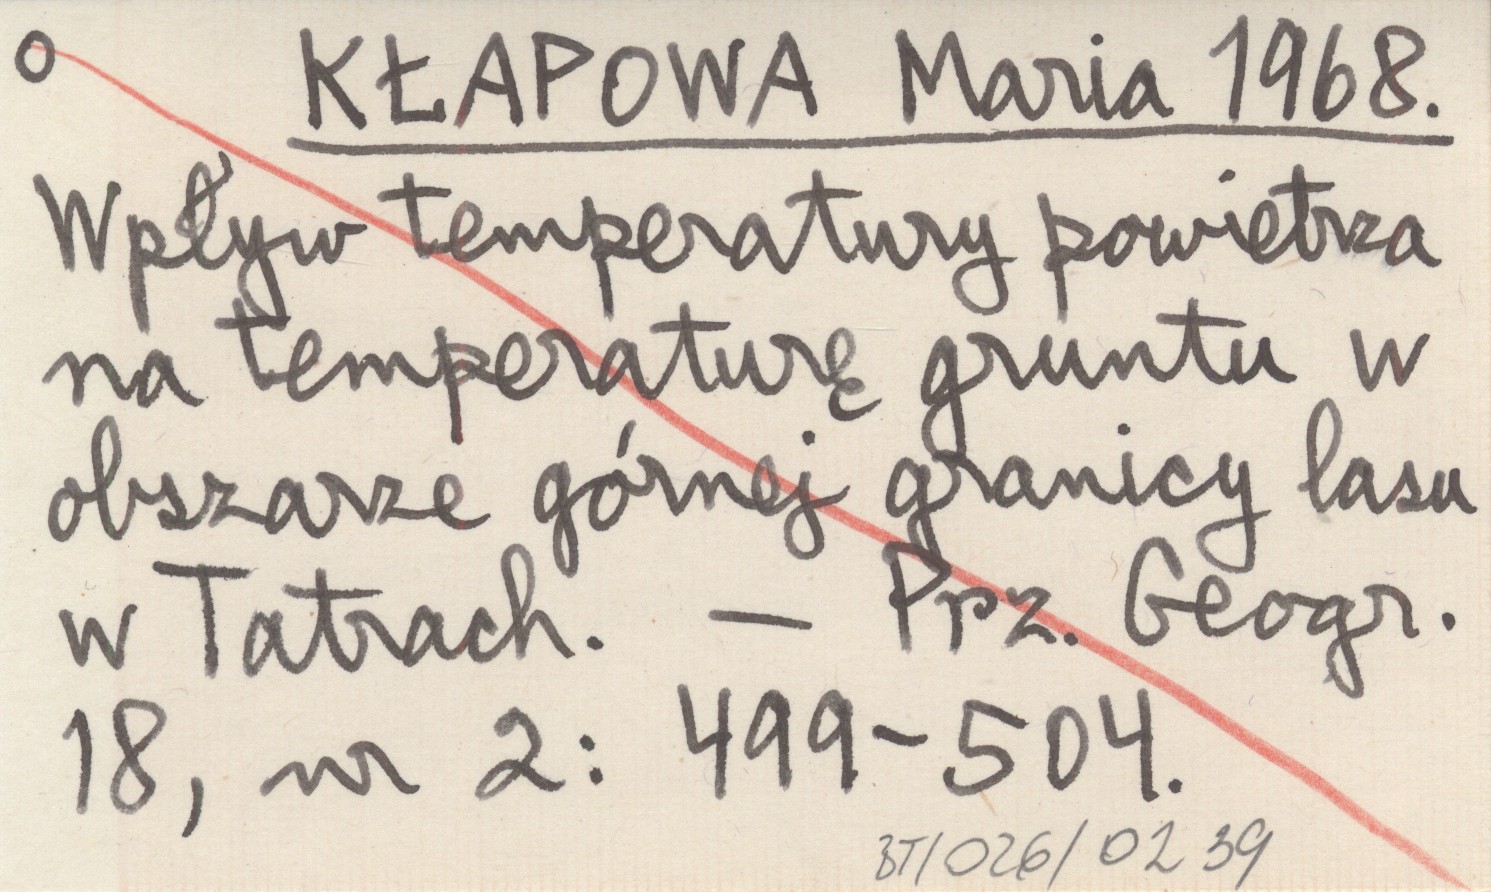 o KŁAPOWA Maria 1968.
Wpływ temperatury powietrza
na temperaturę gruntu w
obszarze górnej granicy lasu
w Tatrach. — Prz. Geogr.
18, nr 2: 499-504.
BT/026/02 39